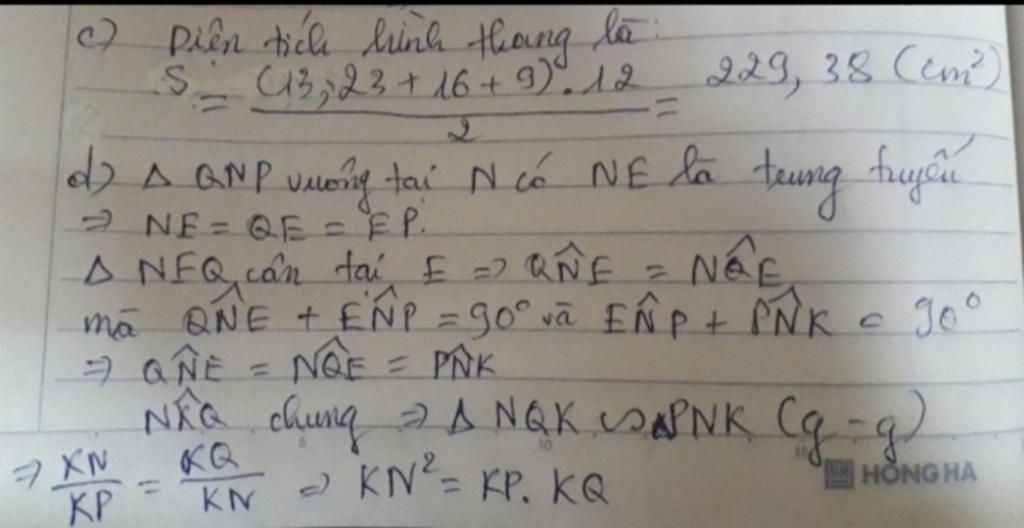 c) Diện tích hình thang là:
S = (13,23 + 16 + 9).12 / 2 = 229,38 (cm²)
d) Δ QNP vuông tại N có NE là trung tuyến
⇒ NE = QE = EP.
Δ NEQ cân tại E ⇒ QN̂E = NQ̂E
mà QN̂E + EN̂P = 90° và EN̂P + PN̂K = 90°
⇒ QN̂E = NQ̂E = PN̂K
NK̂Q chung ⇒ Δ NQK ∽ ΔPNK (g-g)
⇒ KN/KP = KQ/KN ⇒ KN² = KP. KQ
HONG HA